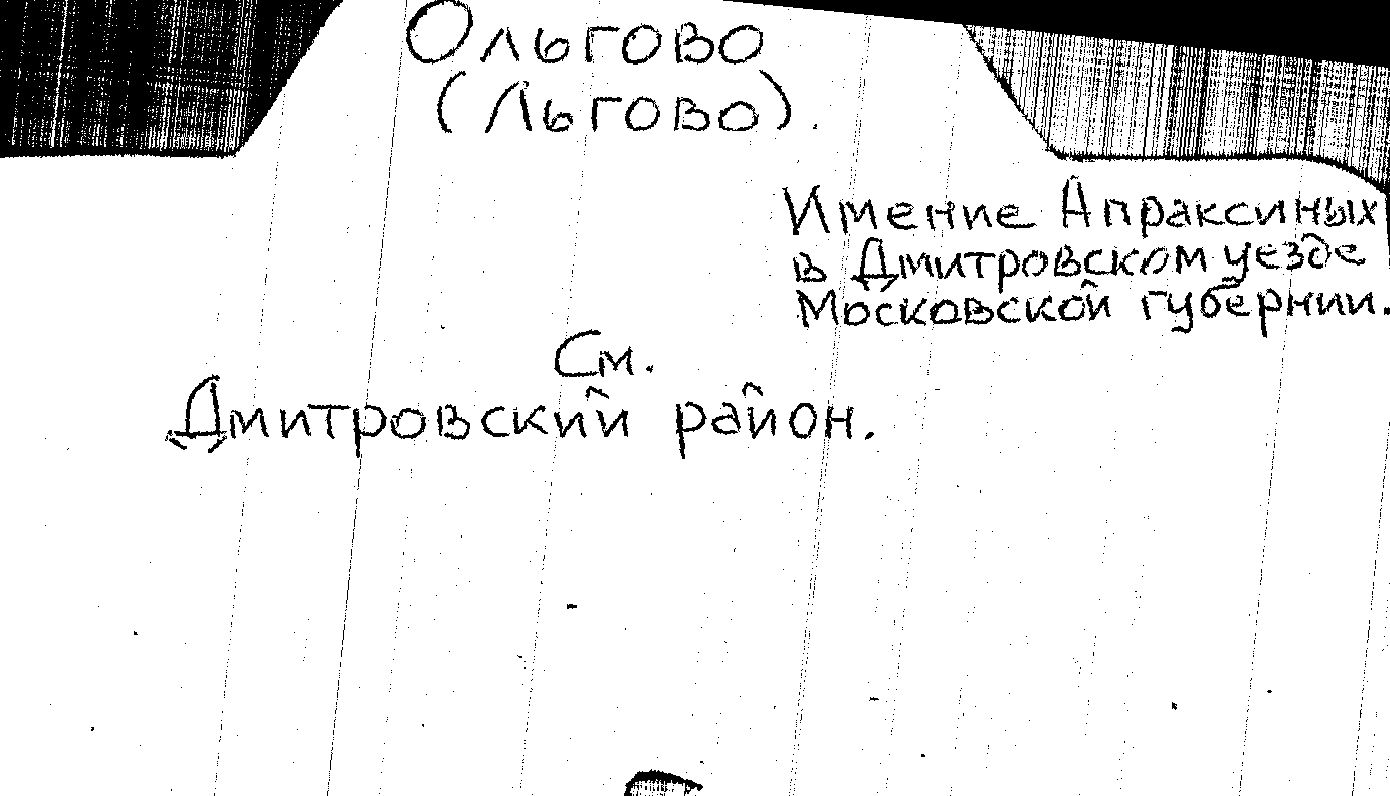 Ольгово
(Льгово).
Имение Апраксиных
в Дмитровском уезде
Московской губернии.
См.
Дмитровский район.